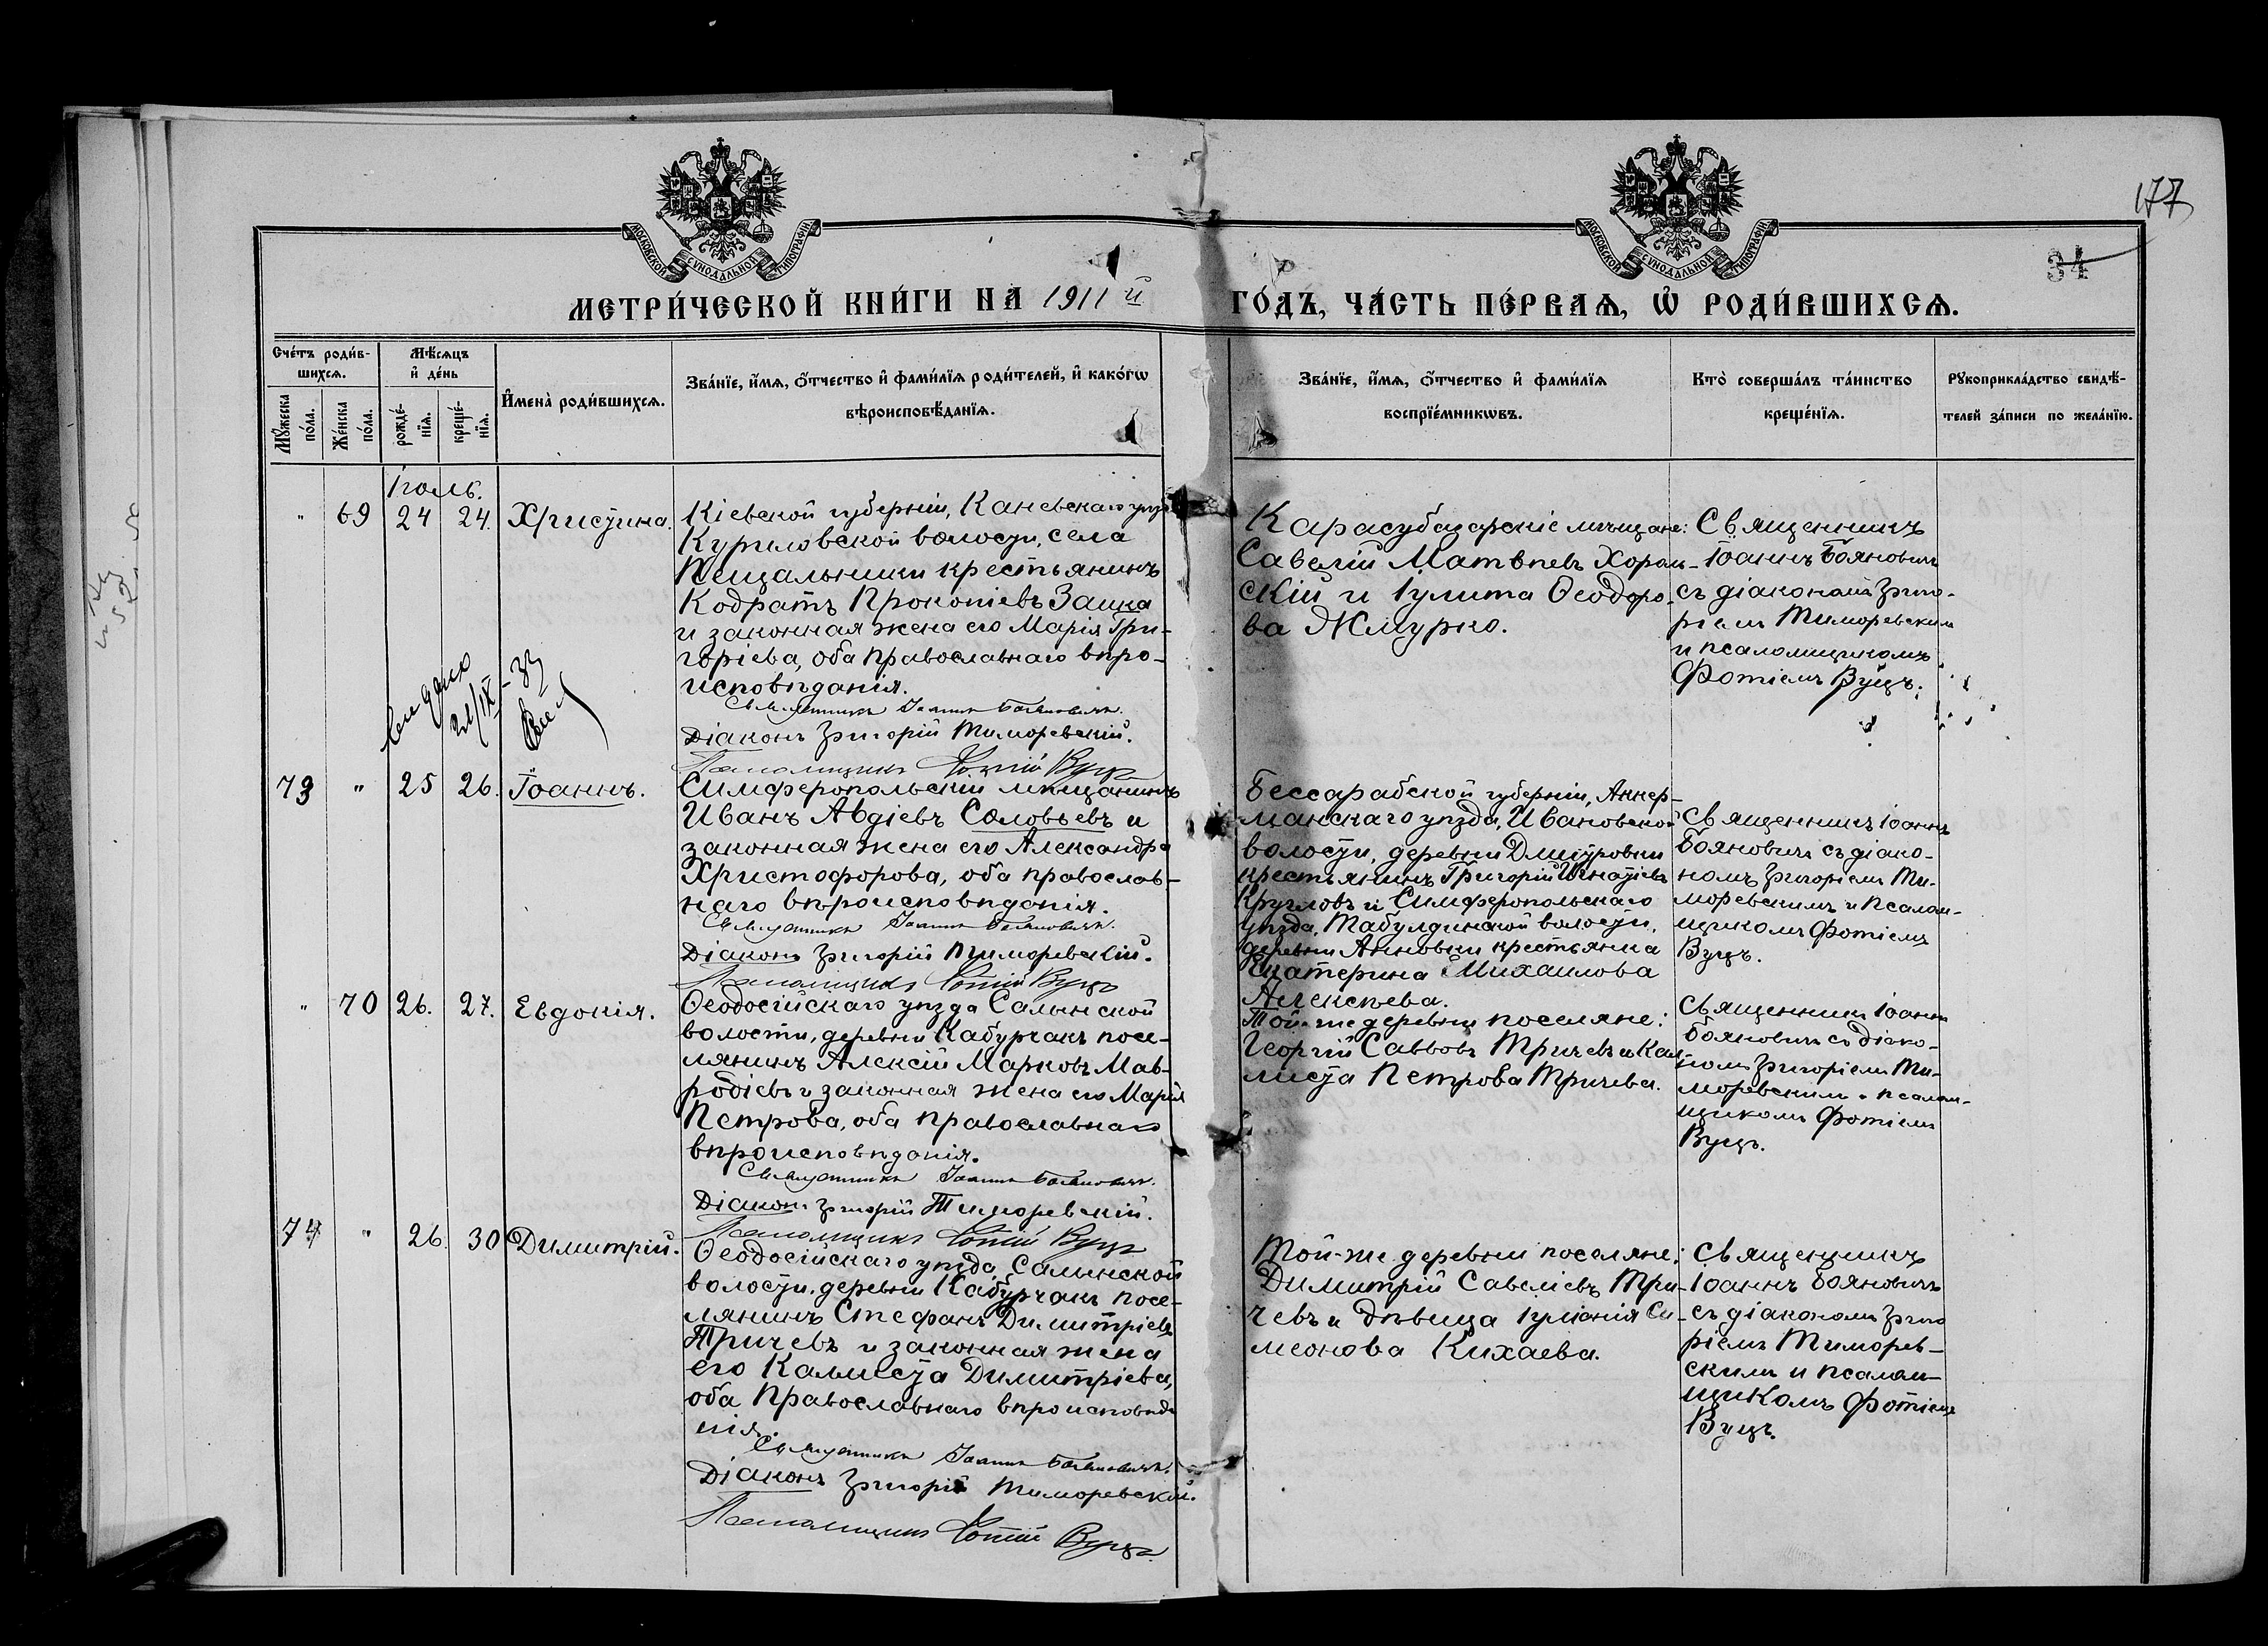 177
34
МОСКОВСКОЙ СѴНОДАЛЬНОЙ ТИПОГРАФІИ
МОСКОВСКОЙ СѴНОДАЛЬНОЙ ТИПОГРАФІИ
МЕТРИ́ЧЕСКОЙ КНИ́ГИ НА 1911 й ГО́ДЪ, ЧА́СТЬ ПЕ́РВАѦ, Ѡ РОДИ́ВШИХСѦ.
Сче́тъ роди́в-
шихсѧ.
Мꙋ́жеска по́ла.
Же́нска по́ла.
Мѣ́сѧцъ
и де́нь
рожде́-
нїѧ.
креще́-
нїѧ.
Имена̀ роди́вшихсѧ.
Зва́нїе, и́мѧ, о́тчество и фами́лїѧ роди́телей, и како́гѡ
вѣроисповѣ́данїѧ.
Зва́нїе, и́мѧ, о́тчество и фами́лїѧ
воспрїе́мникѡвъ.
Кто̀ соверша́лъ та́инство
креще́нїѧ.
Рꙋкоприкла́дство свидѣ́-
телей за́писи по жела́нїю.
Іюль.
" 69 24 24. Христина.
Кіевской губерніи, Каневскаго уѣзда
Куриловской волости, села
Пещальники крестьянинъ
Кодратъ Прокопіевъ Заика
и законная жена его Марія Гри-
горіева, оба Православнаго вѣро-
исповѣданія.
Священникъ Іоаннъ Бояновичъ.
Діаконъ Григорій Тиморевскій.
Псаломщикъ Фотій Вуцъ
Карасубазарскіе мѣщане:
Савелій Матвѣевъ Хораль-
скій и Іулита Ѳеодоро-
ва Жмурко.
Священникъ
Іоаннъ Бояновичъ
съ діакономъ Григо-
ріемъ Тиморевскимъ
и псаломщикомъ
Фотіемъ Вуцъ.
21/IX-33
73 " 25 26. Іоаннъ.
Симферопольскій мѣщанинъ
Иванъ Авдіевъ Соловьевъ и
законная жена его Александра
Христофорова, оба православ-
наго вѣроисповѣданія.
Священникъ Іоаннъ Бояновичъ.
Діаконъ Григорій Тиморевскій.
Псаломщикъ Фотій Вуцъ
Бессарабской губерніи, Аккер-
манскаго уѣзда, Ивановской
волости, деревни Дмитровки
крестьянинъ Григорій Игнатіевъ
Кругловъ и Симферопольскаго
уѣзда, Табулдинской волости,
деревни Анновки крестьянка
Екатерина Михаилова
Алексѣева.
Священникъ Іоаннъ
Бояновичъ съ діако-
номъ Григоріемъ Ти-
моревскимъ и псалом-
щикомъ Фотіемъ
Вуцъ.
" 70 26. 27. Евдокія.
Ѳеодосійскаго уѣзда Салынской
волости, деревни Кабурчакъ посе-
лянинъ Алексій Марковъ Мав-
родіевъ и законная жена его Марія
Петрова, оба Православнаго
вѣроисповѣданія.
Священникъ Іоаннъ Бояновичъ.
Діаконъ Григорій Тиморевскій.
Псаломщикъ Фотій Вуцъ
Той-же деревни поселяне:
Георгій Саввовъ Тричевъ и Кал-
листа Петрова Тричева.
Священникъ Іоаннъ
Бояновичъ съ діако-
номъ Григоріемъ Ти-
моревскимъ и псалом-
щикомъ Фотіемъ
Вуцъ.
74 " 26. 30 Димитрій.
Ѳеодосійскаго уѣзда, Салынской
волости, деревни Кабурчакъ посе-
лянинъ Стефанъ Димитріевъ
Тричевъ и законная жена
его Каллиста Димитріева,
оба Православнаго вѣроисповѣда
нія.
Священникъ Іоаннъ Бояновичъ.
Діаконъ Григорій Тиморевскій.
Псаломщикъ Фотій Вуцъ.
Той-же деревни поселяне:
Димитрій Савеліевъ Три-
чевъ и дѣвица Іуліанія Си-
меонова Кихаева.
Священникъ
Іоаннъ Бояновичъ
съ діакономъ Григо
ріемъ Тиморев-
скимъ и псалом-
щикомъ Фотіемъ
Вуцъ.